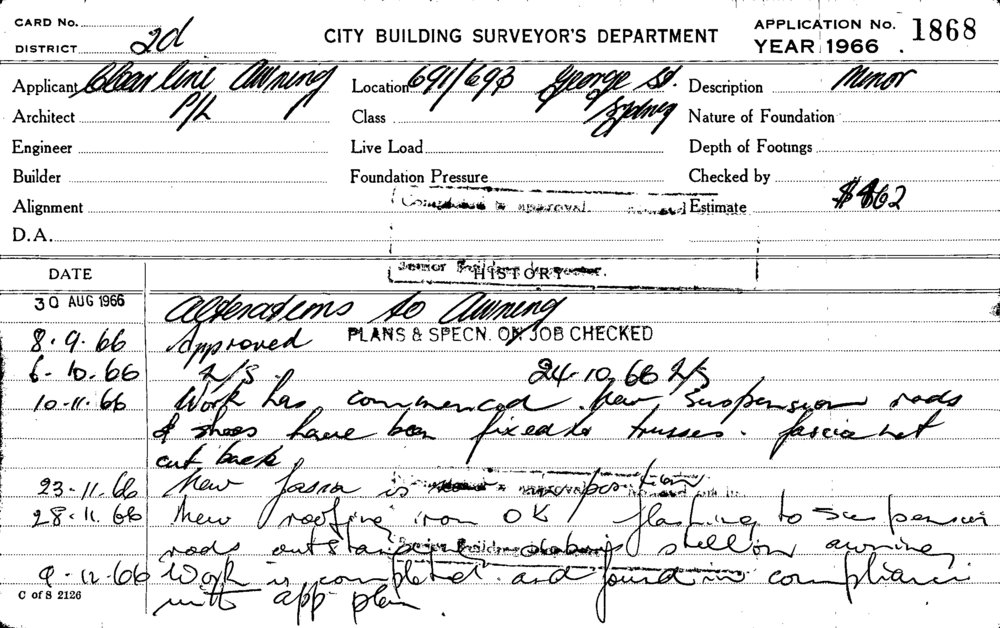 CARD No.
DISTRICT 2d
CITY BUILDING SURVEYOR'S DEPARTMENT
APPLICATION No. 1868
YEAR 1966
Applicant Clear line Awning P/L
Location 691/693 George St. Sydney
Description Minor
Architect
Class
Nature of Foundation
Engineer
Live Load
Depth of Footings
Builder
Foundation Pressure
Checked by
Alignment
Estimate
D.A.
DATE
HISTORY
30 AUG 1966 Alterations to Awning
PLANS & SPECN. ON JOB CHECKED
8.9.66 Approved
6.10.66 2/S. 24.10.66 2/S
10.11.66 Work has commenced. New suspension rods
& shoes have been fixed to trusses. fascia not
cut back
23.11.66 New fascia is position
28.11.66 New roofing iron OK flashing to suspension
rods outstanding still on awning
9.12.66 Work is completed and found in compliance
with app plan.
C of S 2126